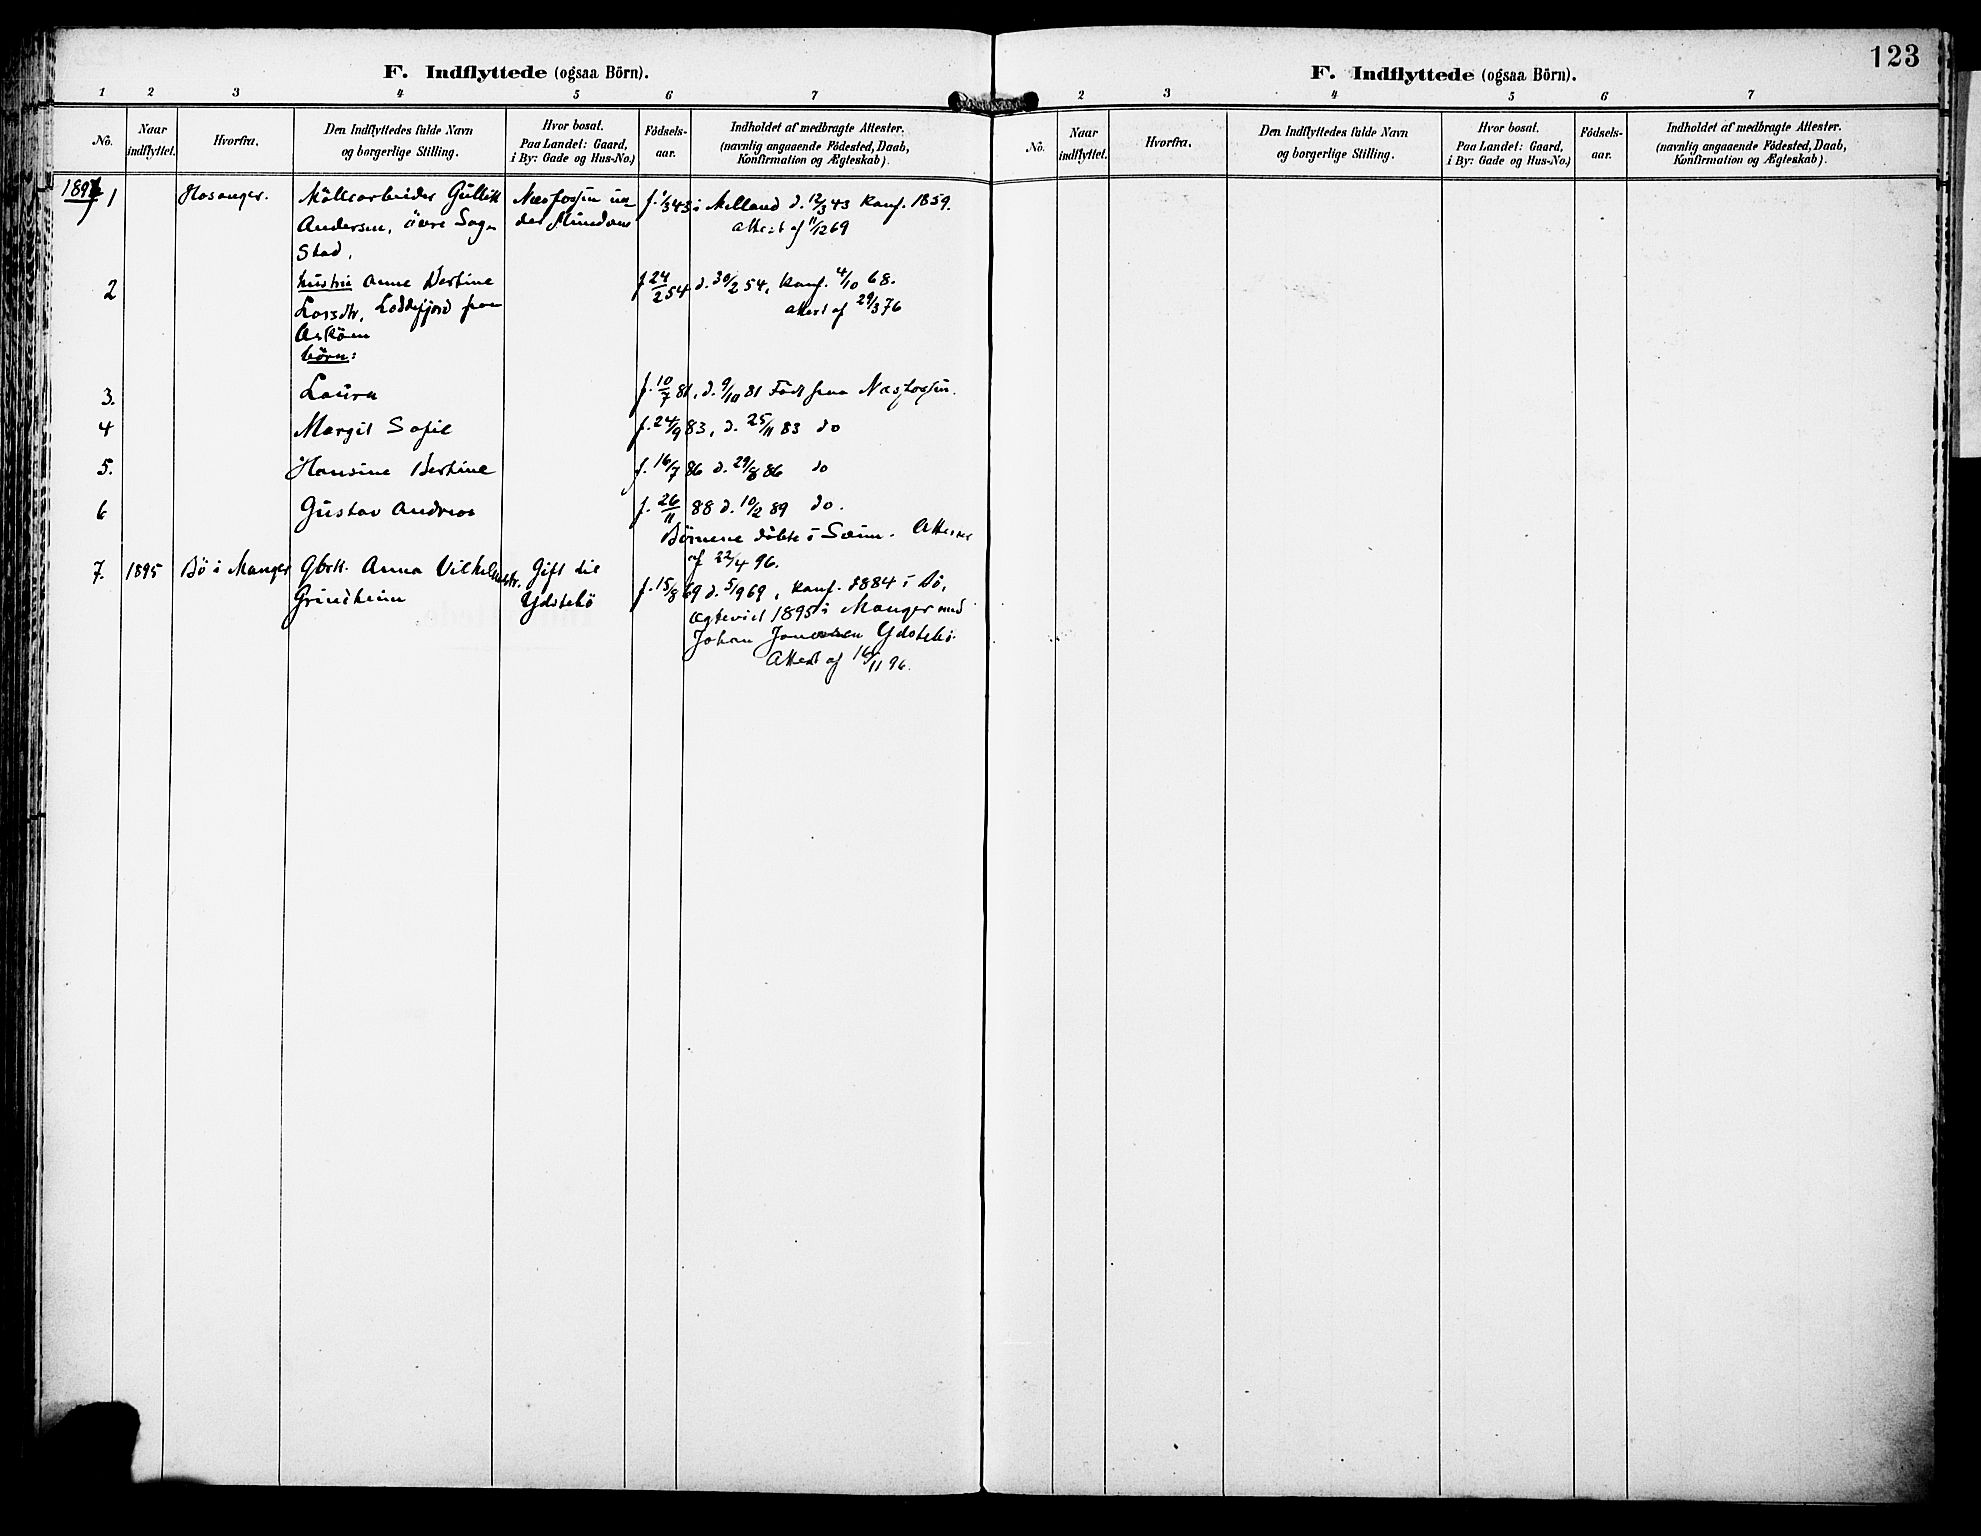 F. Indflyttede (ogsaa Börn).
1 2 3 4 5 6 7
No. Naar indflyttet. Hvorfra. Den Indflyttedes fulde Navn og borgerlige Stilling. Hvor bosat. Paa Landet: Gaard, i By: Gade og Hus-No.) Födsels-aar. Indholdet af medbragte Attester. (navnlig angaaende Födested, Daab, Konfirmation og Ægteskab).
1 Hosanger. Möllearbeider Gullik Næsfossen un- f. 1/3 43 i Melland d. 12/3 43 Konf. 1859.
Andersen, övre Sag- der Mundal Attest af 11/12 69
stad,
2 hustru Anne Bertine f 24/2 54 d. 30/2 54, Konf. 4/10 68.
Larsdtr. Loddefjord fra Attest af 29/3 76
Asköen
börn:
3. Laura f. 10/7 81, d. 9/10 81 Födt paa Næsfossen.
4 Margit Sofie f. 24/9 83, d. 25/11 83 do
5. Hansine Bertine f. 16/7 86 d. 29/8 86 do
6 Gustav Andreas f. 26/11 88 d. 10/2 89 do.
Börnene döbte i Sæim. Attester
af 22/4 96.
7. 1895 Bö i Manger Gbrk. Anna Vilhelmsdtr. Gift til
Grindheim Ydstebö f. 15/8 69 d. 5/9 69, Konf. 1884 i Bö,
Ægteviet 1895 i Manger med
Johan Ydstebö.
Attest af 16/11 96.
123
F. Indflyttede (ogsaa Börn).
2 3 4 5 6 7
No. Naar indflyttet. Hvorfra. Den Indflyttedes fulde Navn og borgerlige Stilling. Hvor bosat. Paa Landet: Gaard, i By: Gade og Hus-No.) Födsels-aar. Indholdet af medbragte Attester. (navnlig angaaende Födested, Daab, Konfirmation og Ægteskab).